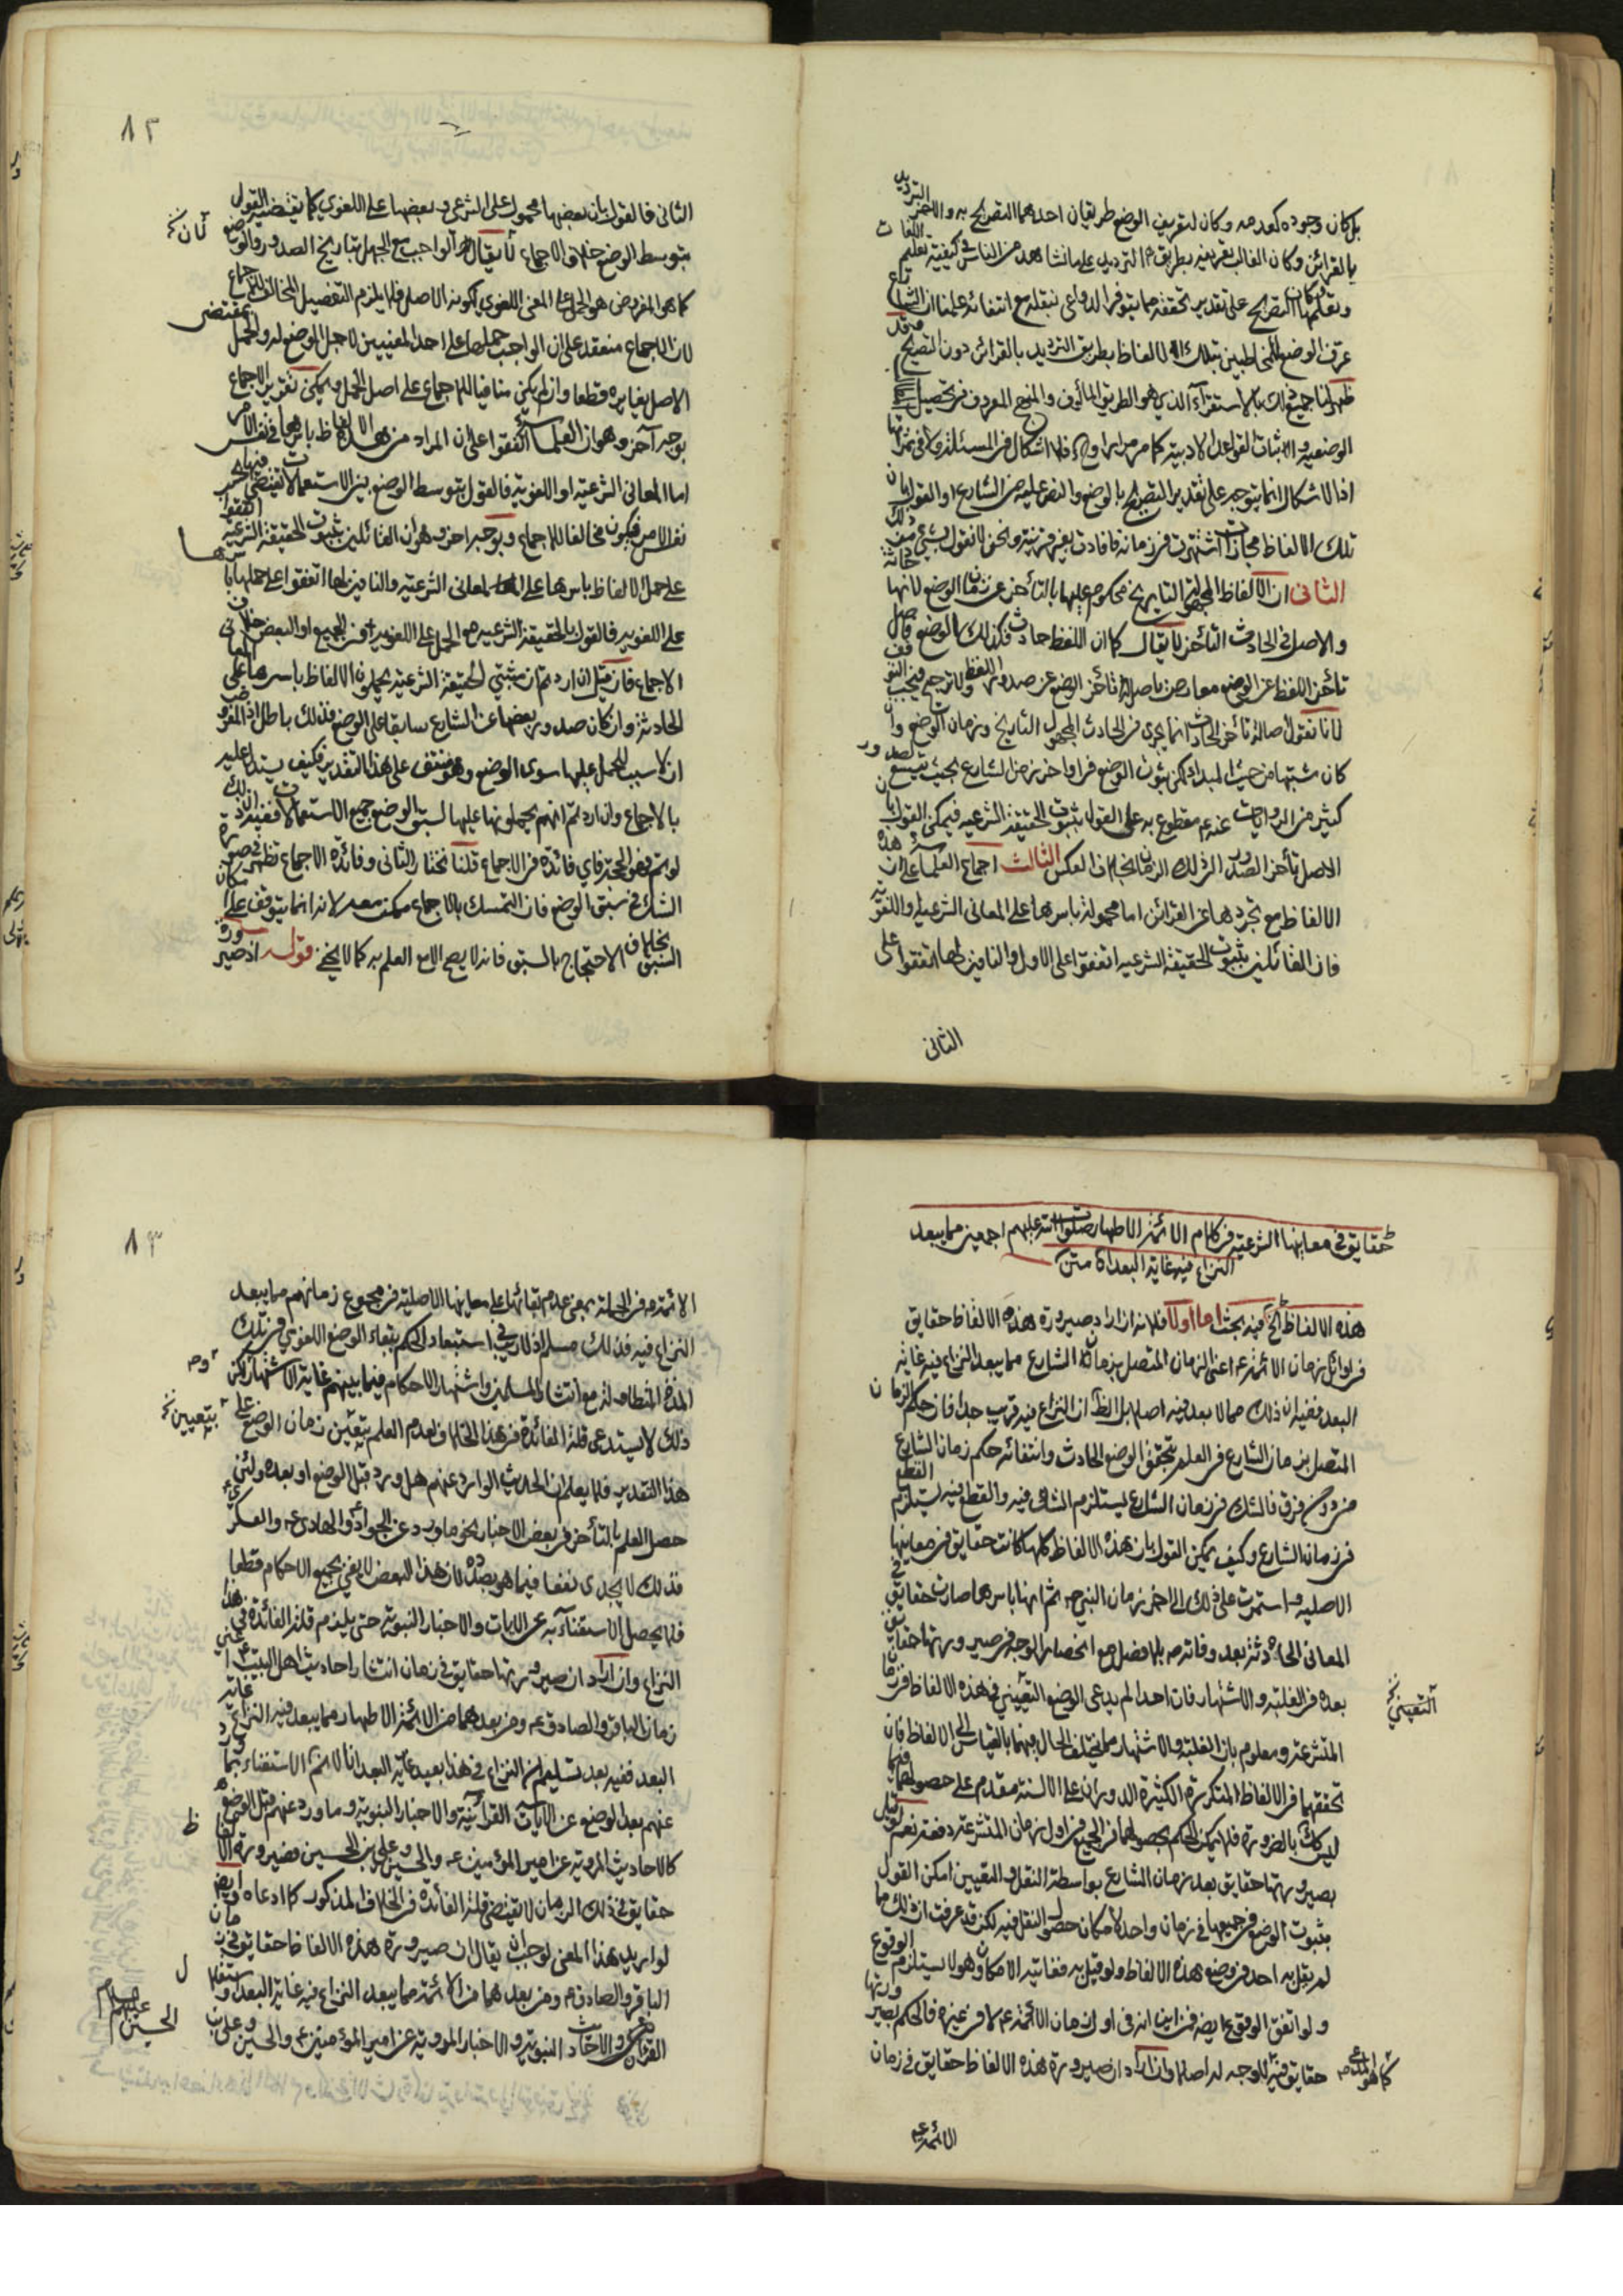 بل كان وجوده كعدمه وكان لتعريف الوضع طريقان احدهما التصريح به والاخر الترديد
بالقرائن وكان الغالب تعريفه بطريق الترديد على ما نشاهد من الناس في كيفية تعلم اللغات
وتعلمها وكان التصريح على تقدير تحققه مما يتوفر الدواعي بنقله مع انتفائه علمنا ان الشارع
عرف الوضع للمخاطبين بتلك الالفاظ بطريق الترديد بالقرائن دون التصريح وقد
ظهر لنا جميع ذلك بالاستقراء الذي هو الطريق المألوف والمنهج المعروف في تحصيل
الوضعية واثبات القواعد الادبية كما مر مرارا وح فلا اشكال في المسئلة ولا في ثمرتها
اذ الاشكال انما يتوجه على تقدير التصريح بالوضع والنص عليه من الشارع او القول بان
تلك الالفاظ مجازات اشتهرت في زمانه فافادت بغير قرينة ونحن لا نقول بشيء من ذلك
الثاني ان الالفاظ المجهولة التاريخ محكوم عليها بالتأخر عن زمان الوضع لانها حادثة
والاصل في الحادث التأخر لا يقال كما ان اللفظ حادث فكذلك الوضع فاصل
تأخر اللفظ عن الوضع معارض باصل تأخر الوضع عن صدور اللفظ ولا ترجيح فيجب التوقف
لانا نقول اصالة تأخر الحادث انما يجري في الحادث المجهول التاريخ وزمان الوضع وان
كان مشتبها من حيث المبدا لكن ثبوت الوضع في اواخر زمن الشارع بحيث يتسع لصدور
كثير من الروايات عنه ع مقطوع به على القول بثبوت الحقيقة الشرعية فيمكن القول بان
الاصل تأخر الصدور الى ذلك الزمان بخلاف العكس الثالث اجماع العلماء على ان هذه
الالفاظ مع تجردها عن القرائن اما محمولة باسرها على المعاني الشرعية واللغوية
فان القائلين بثبوت الحقيقة الشرعية اتفقوا على الاول والنافين لها اتفقوا على
الثاني
٨٢
الثاني فالقول بان بعضها محمول على الشرعي وبعضها على اللغوي كما يقتضيه القول
بتوسط الوضع خلاف الاجماع لا يقال الواجب مع الجهل بتاريخ الصدور والوضع
لان خ
كما هو المفروض هو الحمل على المعنى اللغوي لكونه الاصل فلا يلزم التفصيل المخالف للاجماع
لان الاجماع منعقد على ان الواجب حملها على احد المعنيين لاجل الوضع له والحمل بمقتضى
الاصل يغايره قطعا وان لم يكن منافيا للاجماع على اصل الحمل ويمكن تقرير الاجماع
بوجه آخر وهو ان العلماء اتفقوا على ان المراد من هذه الالفاظ باسرها في نفس الامر
اما المعاني الشرعية او اللغوية فالقول بتوسط الوضع بين الاستعمالات يقتضي
نفس الامر فيكون مخالفا للاجماع وبوجه اخر وهو ان القائلين بثبوت الحقيقة الشرعية اتفقوا
على حمل الالفاظ باسرها على المعاني الشرعية والنافين لها اتفقوا على حملها باسرها
على اللغوية فالقول بالحقيقة الشرعية مع الحمل على اللغوية في الجميع او البعض خلاف
الاجماع فان قيل ان اردتم ان مثبتي الحقيقة الشرعية يحملون الالفاظ باسرها على المعاني
الحادثة وان كان صدور بعضها عن الشارع سابقا على الوضع فذلك باطل اذ المفروض
ان لا سبب للحمل عليها سوى الوضع وهو منتف على هذا التقدير فكيف يستدل عليه
بالاجماع وان اردتم انهم يحملونها عليها لسبق الوضع جميع الاستعمالات ففيه ان ذلك
لو تم فهو الحجة فاي فائدة في الاجماع قلنا نختار الثاني وفائدة الاجماع تظهر في صورة
الشك في سبق الوضع فان التمسك بالاجماع ممكن معه لانه انما يتوقف على امكان
السبق بخلاف الاحتجاج بالسبق فانه لا يصح الا مع العلم به كما لا يخفى قوله اذ صيرورة
حقايق في معانيها الشرعية في كلام الائمة الاطهار صلوات الله عليهم اجمعين مما يبعد
النزاع فيه غاية البعد متن
هذه الالفاظ الخ فيه بحث اما اولا فلانه ان اراد صيرورة هذه الالفاظ حقايق
في اوائل زمان الائمة ع اعني الزمان المتصل بزمان الشارع مما يبعد النزاع فيه غاية
البعد ففيه ان ذلك مما لا بعد فيه اصلا بل الظ ان النزاع فيه قريب جدا فان حكم الزمان
المتصل بزمان الشارع في العلم بتحقق الوضع الحادث وانتفائه حكم زمان الشارع
من دون فرق فالشك في زمان الشارع يستلزم الشك فيه والقطع فيه يستلزم القطع
في زمان الشارع وكيف يمكن القول بان هذه الالفاظ كلها كانت حقايق في معانيها
الاصلية واستمرت على ذلك الى اخر زمان النبي ص ثم انها باسرها صارت حقايق في
المعاني الحادثة بعد وفاته ص بلا فصل مع انحصار الوجه في صيرورتها حقايق
بعده في الغلبة والاشتهار فان احدا لم يدعى الوضع التعييني في هذه الالفاظ في زمان
التعيني خ
المتشرعة ومعلوم بان الغلبة والاشتهار مما يختلف الحال فيهما بالقياس الى الالفاظ فان
تحققهما في الالفاظ المتكررة الكثيرة الدوران على الالسنة مقدم على حصولهما فيما
ليس كك بالضرورة فلا يمكن الحكم بحصولهما في الجميع في اول زمان المتشرعة دفعة نعم لو قيل
بصيرورتها حقايق بعد زمان الشارع بواسطة النقل والتعيين امكن القول
بثبوت الوضع في جميعها في زمان واحد لامكان حصول النقل فيه لكن قد عرفت ان ذلك مما
لم يقل به احد في وضع هذه الالفاظ ولو قيل به فغايته الامكان وهو لا يستلزم الوقوع
ولو اتفق الوقوع ايضا فمن اين انه في اول زمان الائمة ع لا في غيره فالحكم بصيرورتها
حقايق فيه لا وجه له اصلا وان اراد ان صيرورة هذه الالفاظ حقايق في زمان
كما هو المدعى
الائمة ع
٨٣
الائمة ع في الجملة بمعنى عدم بقائها على معانيها الاصلية في مجموع زمانهم مما يبعد
النزاع فيه فذلك مسلم اذ لا ريب في استبعاد الحكم ببقاء الوضع اللغوي في تلك
المدة المتطاولة مع انتشار المسلمين واشتهار الاحكام فيما بينهم غاية الاشتهار لكن
ذلك لا يستدعي قلة الفائدة في هذا الخلاف لعدم العلم بتعين زمان الوضع على
بتعيين خ
هذا التقدير فلا يعلم ان الحديث الوارد عنهم هل ورد قبل الوضع او بعده ولئن
حصل العلم بالتأخر في بعض الاخبار نحو ما ورد عن الجواد والهادي والعسكري
فذلك لا يجدي نفعا فيما هو بصدده لان هذا البعض لا يفي بجميع الاحكام قطعا
فلا يحصل الاستغناء به عن الايات والاخبار النبوية حتى يلزم قلة الفائدة في هذا
النزاع وان اراد ان صيرورتها حقايق في زمان انتشار احاديث اهل البيت اعني
زمان الباقر والصادق ع ومن بعدهما من الائمة الاطهار مما يبعد فيه النزاع غاية
البعد ففيه بعد تسليم ان النزاع في هذا بعيد غاية البعد انا لا نم الاستغناء بما ورد
عنهم بعد الوضع عن الايات القرآنية والاخبار النبوية وما ورد عنهم قبل الوضع
ظ
كالاحاديث المروية عن امير المؤمنين ع والحسين وعلي بن الحسين فصيرورة الالفاظ
حقايق في ذلك الزمان لا يقتضي قلة الفائدة في الخلاف المذكور كما ادعاه وايضا
لو اريد هذا المعنى لوجب ان يقال ان صيرورة هذه الالفاظ حقايق في زمان
الباقر والصادق ع ومن بعدهما من الائمة مما يبعد النزاع فيه غاية البعد
القرآن والاحاديث النبوية والاخبار المروية عن امير المؤمنين ع والحسن وعلي بن
الحسين عليهم السلام